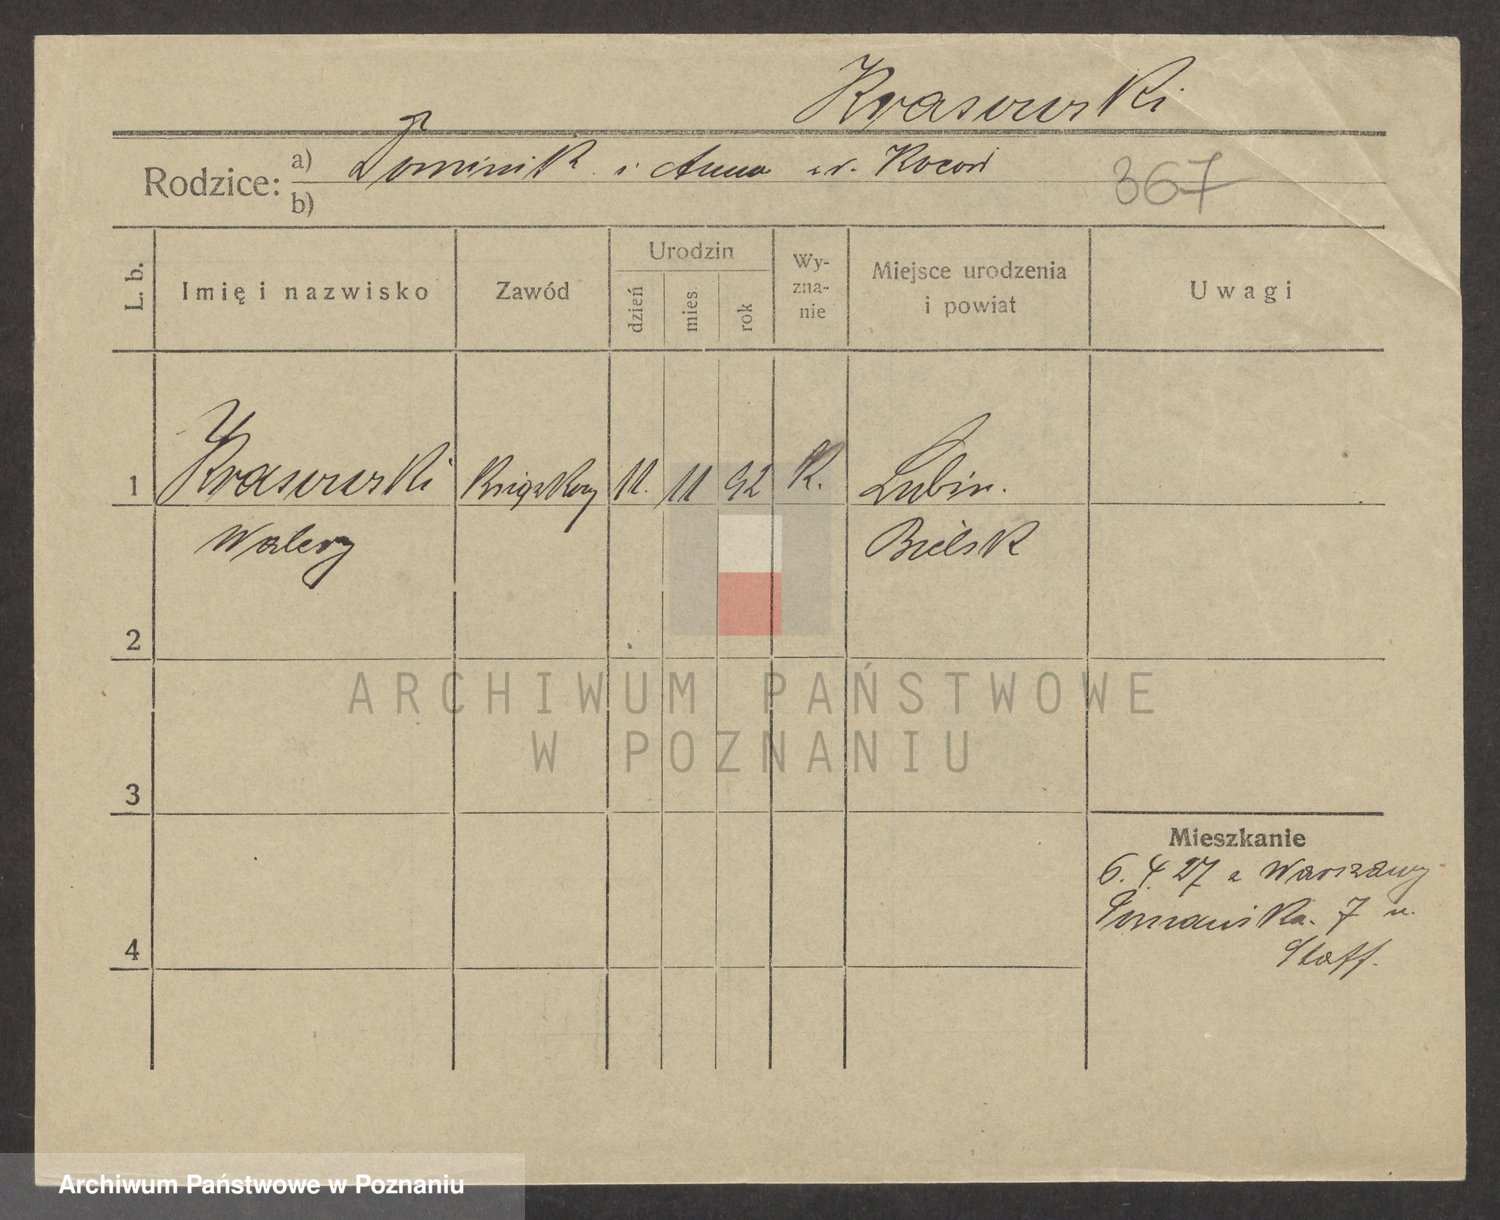 Krasowski
Rodzice: a) Dominik i Anna
b)
367
L. b.
Imię i nazwisko
Zawód
Urodzin
dzień
mies.
rok
Wy-
zna-
nie
Miejsce urodzenia
i powiat
Uwagi
1 Krasowski Książkowy 11. 11 92 K. Lubin.
Walery Bielsk
2
3
4
Mieszkanie
6. 4 27 z Warszawy
7 u.
Staff.
ARCHIWUM PAŃSTWOWE
W POZNANIU
Archiwum Państwowe w Poznaniu